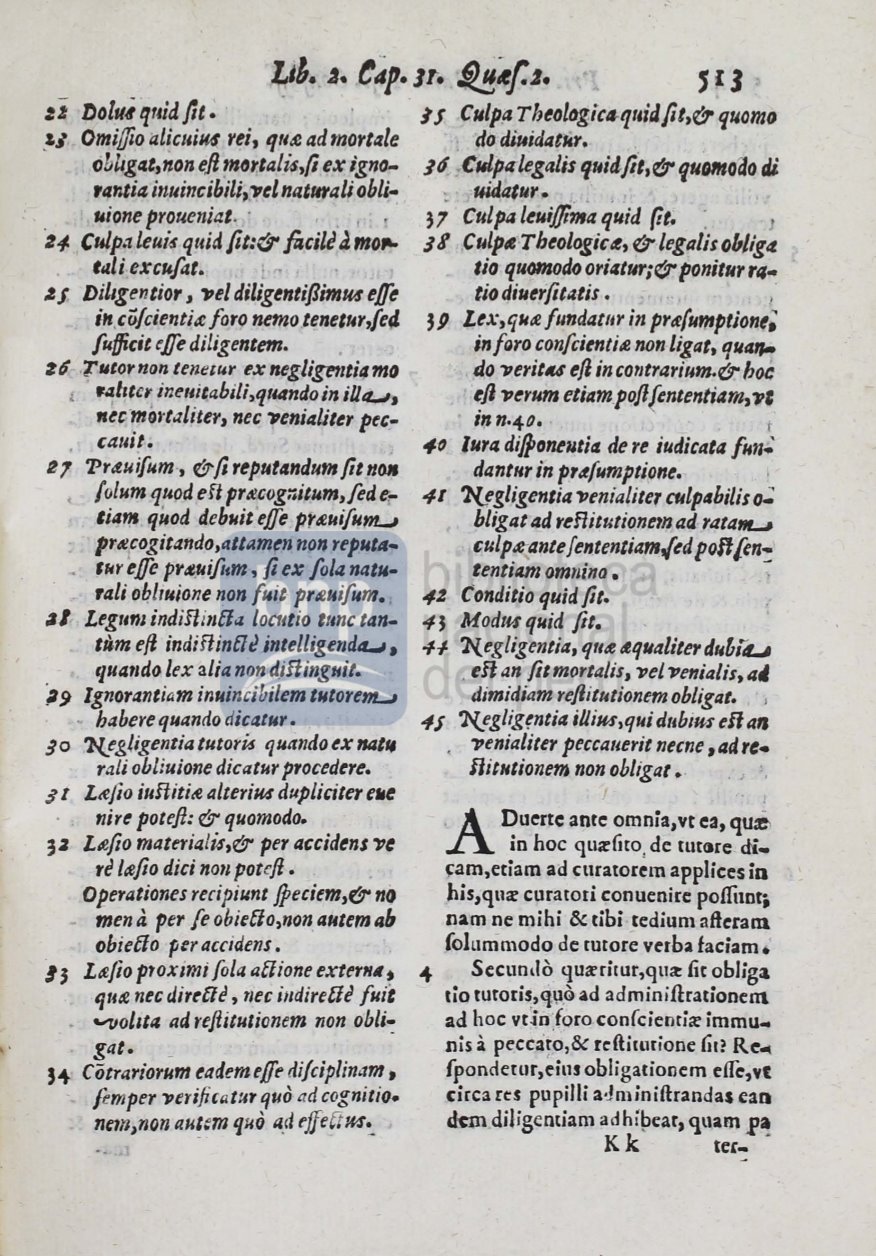 Lib. 2. Cap. 31. Quæſ. 2. 513
22 Dolus quid ſit.
23 Omiſſio alicuius rei, quæ ad mortale
obligat, non eſt mortalis, ſi ex igno-
rantia inuincibili, vel naturali obli-
uione proueniat.
24 Culpa leuis quid ſit: & facilè à mor-
tali excuſat.
25 Diligentior, vel diligentißimus eſſe
in cōſcientiæ foro nemo tenetur, ſed
ſufficit eſſe diligentem.
26 Tutor non tenetur ex negligentia mo
raliter ineuitabili, quando in illa,
nec mortaliter, nec venialiter pec-
cauit.
27 Præuiſum, & ſi reputandum ſit non
ſolum quod eſt præcognitum, ſed e-
tiam quod debuit eſſe præuiſum
præcogitando, attamen non reputa-
tur eſſe præuiſum, ſi ex ſola natu-
rali obliuione non fuit præuiſum.
28 Legum indiſtincta locutio tunc tan-
tùm eſt indiſtinctè intelligenda,
quando lex alia non diſtinguit.
29 Ignorantiam inuincibilem tutorem
habere quando dicatur.
30 Negligentia tutoris quando ex natu
rali obliuione dicatur procedere.
31 Læſio iuſtitiæ alterius dupliciter eue
nire poteſt: & quomodo.
32 Læſio materialis, & per accidens ve
rè læſio dici non poteſt.
Operationes recipiunt ſpeciem, & no
men à per ſe obiecto, non autem ab
obiecto per accidens.
33 Læſio proximi ſola actione externa,
quæ nec directè, nec indirectè fuit
volita ad reſtitutionem non obli-
gat.
34 Cōtrariorum eadem eſſe diſciplinam,
ſemper verificatur quò ad cognitio-
nem, non autem quò ad effectus.
35 Culpa Theologica quid ſit, & quomo
do diuidatur.
36 Culpa legalis quid ſit, & quomodo di
uidatur.
37 Culpa leuiſſima quid ſit.
38 Culpæ Theologicæ, & legalis obliga
tio quomodo oriatur; & ponitur ra-
tio diuerſitatis.
39 Lex, quæ fundatur in præſumptione,
in foro conſcientiæ non ligat, quan-
do veritas eſt in contrarium. & hoc
eſt verum etiam poſt ſententiam, vt
in n. 40.
40 Iura diſponentia de re iudicata fun-
dantur in præſumptione.
41 Negligentia venialiter culpabilis o-
bligat ad reſtitutionem ad ratam
culpæ ante ſententiam, ſed poſt ſen-
tentiam omnino.
42 Conditio quid ſit.
43 Modus quid ſit.
44 Negligentia, quæ æqualiter dubia
eſt an ſit mortalis, vel venialis, ad
dimidiam reſtitutionem obligat.
45 Negligentia illius, qui dubius eſt an
venialiter peccauerit necne, ad re-
ſtitutionem non obligat.
ADuerte ante omnia, vt ea, quæ
in hoc quæſito de tutore di-
cam, etiam ad curatorem applices in
his, quæ curatori conuenire poſſunt;
nam ne mihi & tibi tedium afferam
ſolummodo de tutore verba faciam.
4 Secundò quæritur, quæ ſit obliga
tio tutoris, quò ad adminiſtrationem
ad hoc vt in foro conſcientiæ immu-
nis à peccato, & reſtitutione ſit? Re-
ſpondetur, eius obligationem eſſe, vt
circa res pupilli adminiſtrandas ean
dem diligentiam adhibeat, quam pa
K k ter-